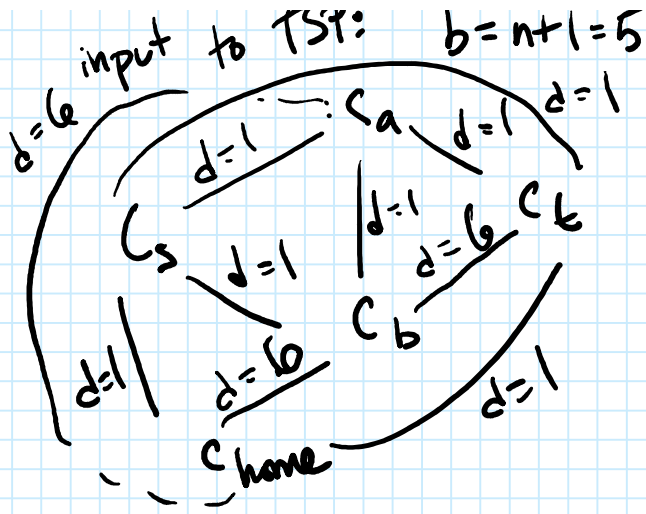 input to TSP: b=n+1=5
d=6
d=1
Ca
d=1
d=1
Cs
d=1
d=1
d=6
Ct
Cb
d=1
d=6
d=1
Chome